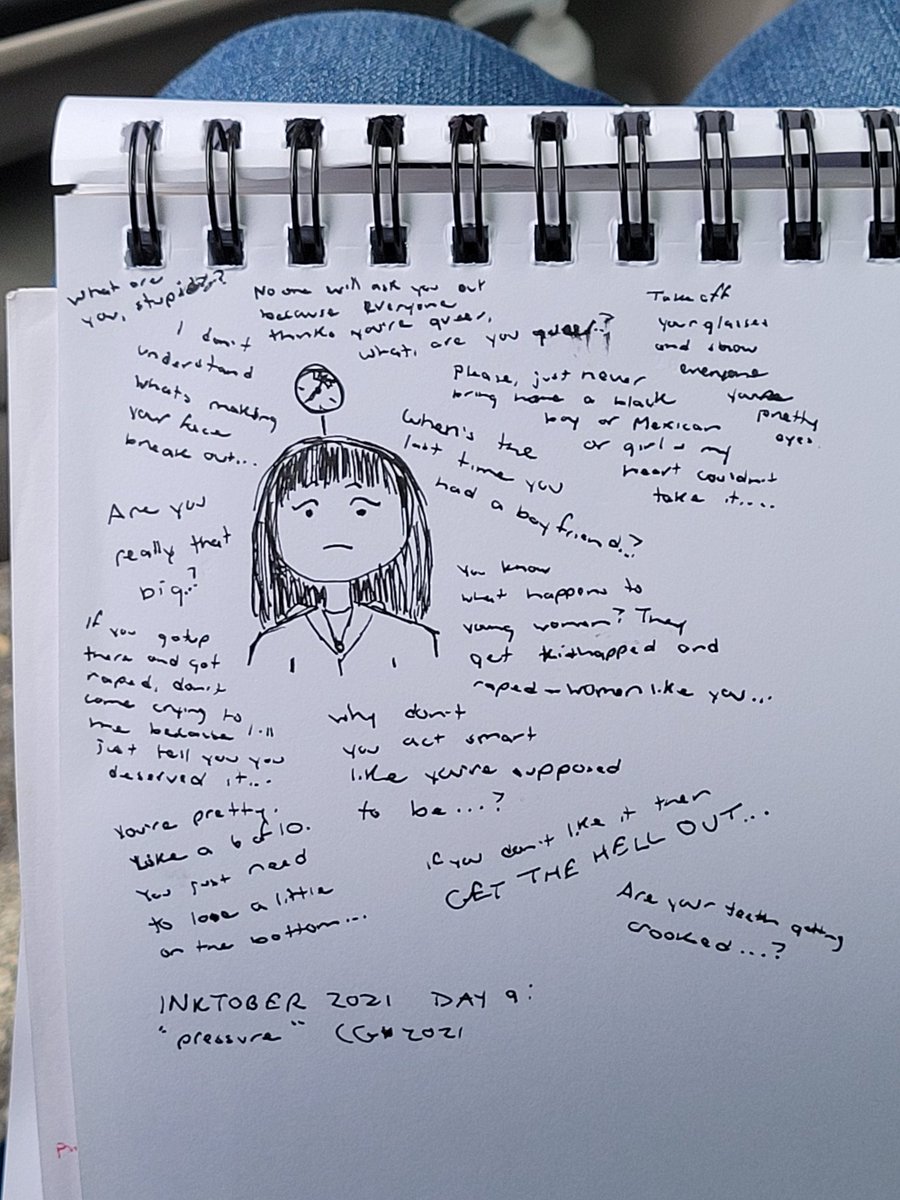 What are
you, stupid??
No one will ask you out
because everyone
thinks you're queer.
What, are you queer..?
Take off
your glasses
and show
everyone
you're
pretty
eyes.
I don't
understand
whats making
your face
break out...
Please, just never
bring home a black
boy or Mexican
or girl - my
heart couldn't
take it....
When's the
last time you
had a boyfriend..?
Are you
really that
big..?
You know
what happens to
young women? They
get kidnapped and
raped - women like you...
If you go up
there and get
raped, don't
come crying to
me because I'll
just tell you you
deserved it...
Why don't
you act smart
like you're supposed
to be...?
You're pretty.
Like a 6 of 10.
You just need
to lose a little
on the bottom...
If you don't like it then
GET THE HELL OUT...
Are your teeth getting
crooked....?
INKTOBER 2021 DAY 9:
"pressure" CG 2021